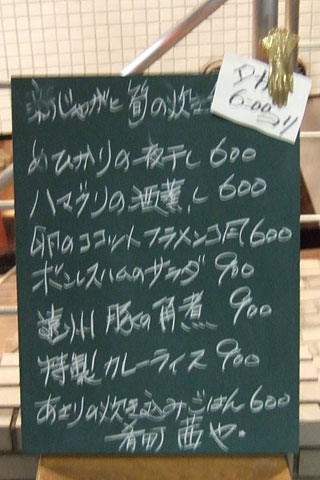 新じゃがと筍の炊き
夕方
6:00より
めひかりの夜干し 600
ハマグリの酒蒸し 600
卵のココットフラメンコ風 600
ボンレスハムのサラダ 900
遠州豚の角煮 900
特製カレーライス 900
あさりの炊き込みごはん 600
有町 茜や.